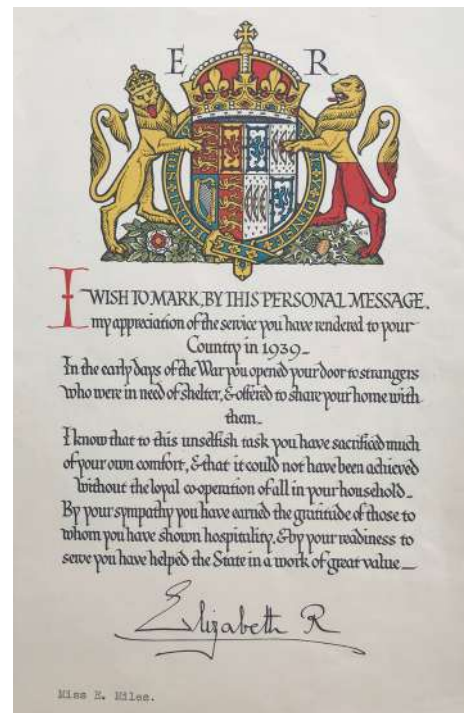 E R
I WISH TO MARK, BY THIS PERSONAL MESSAGE,
my appreciation of the service you have rendered to your
Country in 1939–
In the early days of the War you opened your door to strangers
who were in need of shelter, & offered to share your home with
them–
I know that to this unselfish task you have sacrificed much
of your own comfort, & that it could not have been achieved
without the loyal co-operation of all in your household–
By your sympathy you have earned the gratitude of those to
whom you have shown hospitality, & by your readiness to
serve you have helped the State in a work of great value–
Elizabeth R
Miss E. Miles.